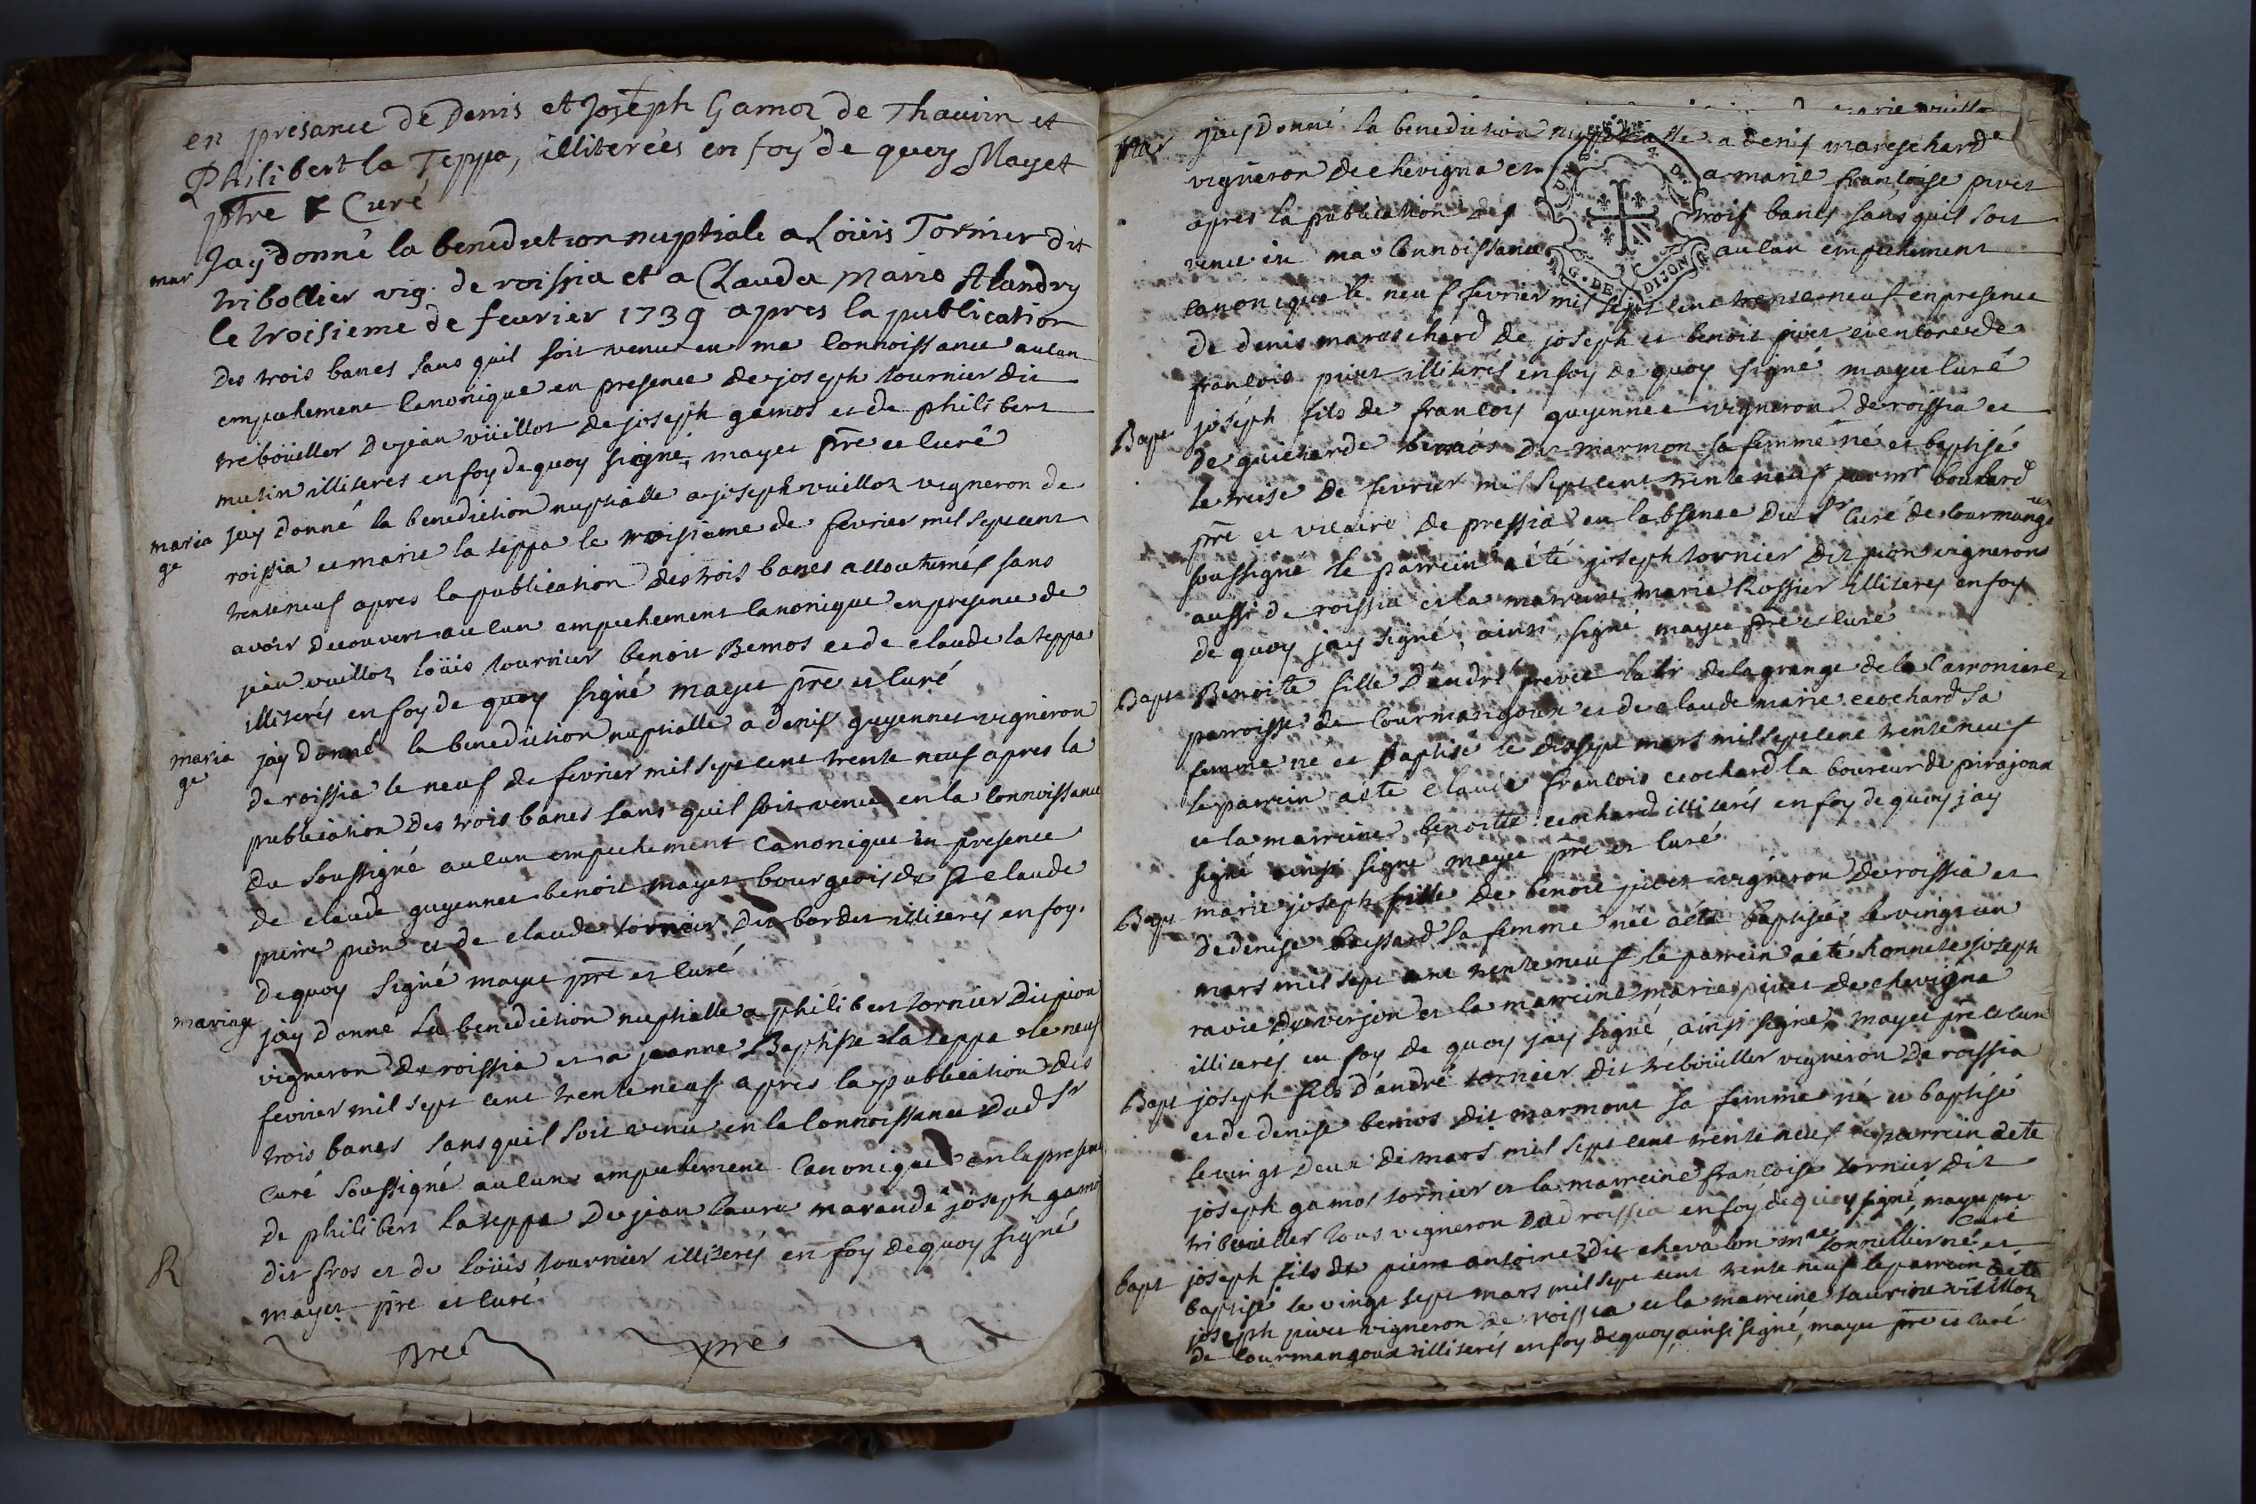 en presance de Denis et Joseph Gamoz de Thauvin et
Philibert la Teppa, illiterées en foy de quoy Mayet
ptre & Curé
mar Jay donné la benediction nuptiale a Loüis Tornier dit
tribollier vig. de roissia et a Clauda Marie Alandry
le troisieme de feurier 1739 apres la publication
des trois bancs sans quil soit venu en ma connoissance aucun
empechement canonique en presence de joseph tournier dit
treboüeller de jean vüillot de joseph gamos et de philibert
mutin illiterés en foy de quoy signé, mayet pre et curé
maria jay donné la benediction nuptialle a joseph vuilloz vigneron de
ge roissia et marie la teppa le troisième de fevrier mil sept cent
trente neuf apres la publication des trois bancs accoutumés sans
avoir decouvert aucun empechement canonique en presence de
jean vuilloz loüis tournier benoit Bemos et de claude la teppa
illiterés en foy de quoy signé mayet pre et curé
maria jay donné la benediction nuptialle a denis guyennet vigneron
ge de roissia le neuf de fevrier mil sept cent trente neuf apres la
publication des trois bancs sans quil soit venu en la connoissance
du soussigné aucun empechement canonique en presence
de claude guyennet benoit mayet bourgeois de St claude
pierre pion et de claude tornier dit bordet illiterés en foy
de quoy signé mayet pre et curé
mariage jay donne la benediction nuptialle a philibert tornier dit pion
vigneron de roissia et a jeanne Baptiste la teppa le neuf
fevrier mil sept cent trente neuf apres la publication des
trois bancs sans quil soit venu en la connoissance dud Sr
curé soussigné aucun empechement canonique en la presence
de philibert la teppa de jean laure joseph gamo
R dit fros et de loüis tournier illiterés en foy de quoy signé
mayet pre et curé
pre pre
marie vuilloz
mar jay donné la benediction nuptialle a denis mareschard
vigneron de chevigna et a marie françoise pivet
apres la publication des trois bancs sans quil soit
venu en ma connoissance aucun empechement
G. DE DIJON
canonique le neuf fevrier mil sept cent trente neuf en presence
de denis mareschard de joseph et benoit pivet et encore de
francois pivet illiterés en foy de quoy signé mayet curé
Bapt joseph fils de françois guyennet vigneron de roissia et
de guicharde bemos dit marmon sa femme né et baptisé
le treise de fevrier mil sept cent trente neuf par mr bouchard
pre et vicaire de pressia en labsence du Sr curé de courmangoux
soussigné le parrein a été joseph tornier dit pion vigneron
aussi de roissia et la marreine marie Rossier illiterés en foy
de quoy jay signé, ainsi signé mayet pre et curé
Bapt Benoite fille d'andré labr de la grange de la Carroniere
parroisse de Courmangoux et de claude marie crochard sa
femme né et baptisé le dixsept mars mil sept cent trente neuf
le parrein a été claude francois crochard laboureur de pirajoux
et la marreine benoitte crochard illiterés en foy de quoy jay
signé ainsi signé mayet pre et curé
Bapt marie joseph fille de benoit pivet vigneron de roissia et
de denise sa femme née a été baptisée le vingt un
mars mil sept cent trente neuf le parrein a été honnete joseph
ravie de verjon et la marreine marie pivet de chevigna
illiterés en foy de quoy jay signé, ainsi signé mayet pre et curé
Bapt joseph fils d'andré tornier dit treboüeller vigneron de roissia
et de denise bemos dit marmont sa femme né et baptisé
le vingt deux de mars mil sept cent trente neuf le parrein a été
joseph gamos tornier et la marreine françoise tornier dit
tribouiller tous vigneron dud roissia en foy de quoy signé, mayet pre
curé
bapt joseph fils de pierre antoine dit chevalon mre tonnellier né et
baptisé le vingt sept mars mil sept cent trente neuf le parrein a été
joseph pivet vigneron de roissia et la marreine vüilloz
de courmangoux illiterés en foy de quoy, ainsi signé, mayet pre et curé